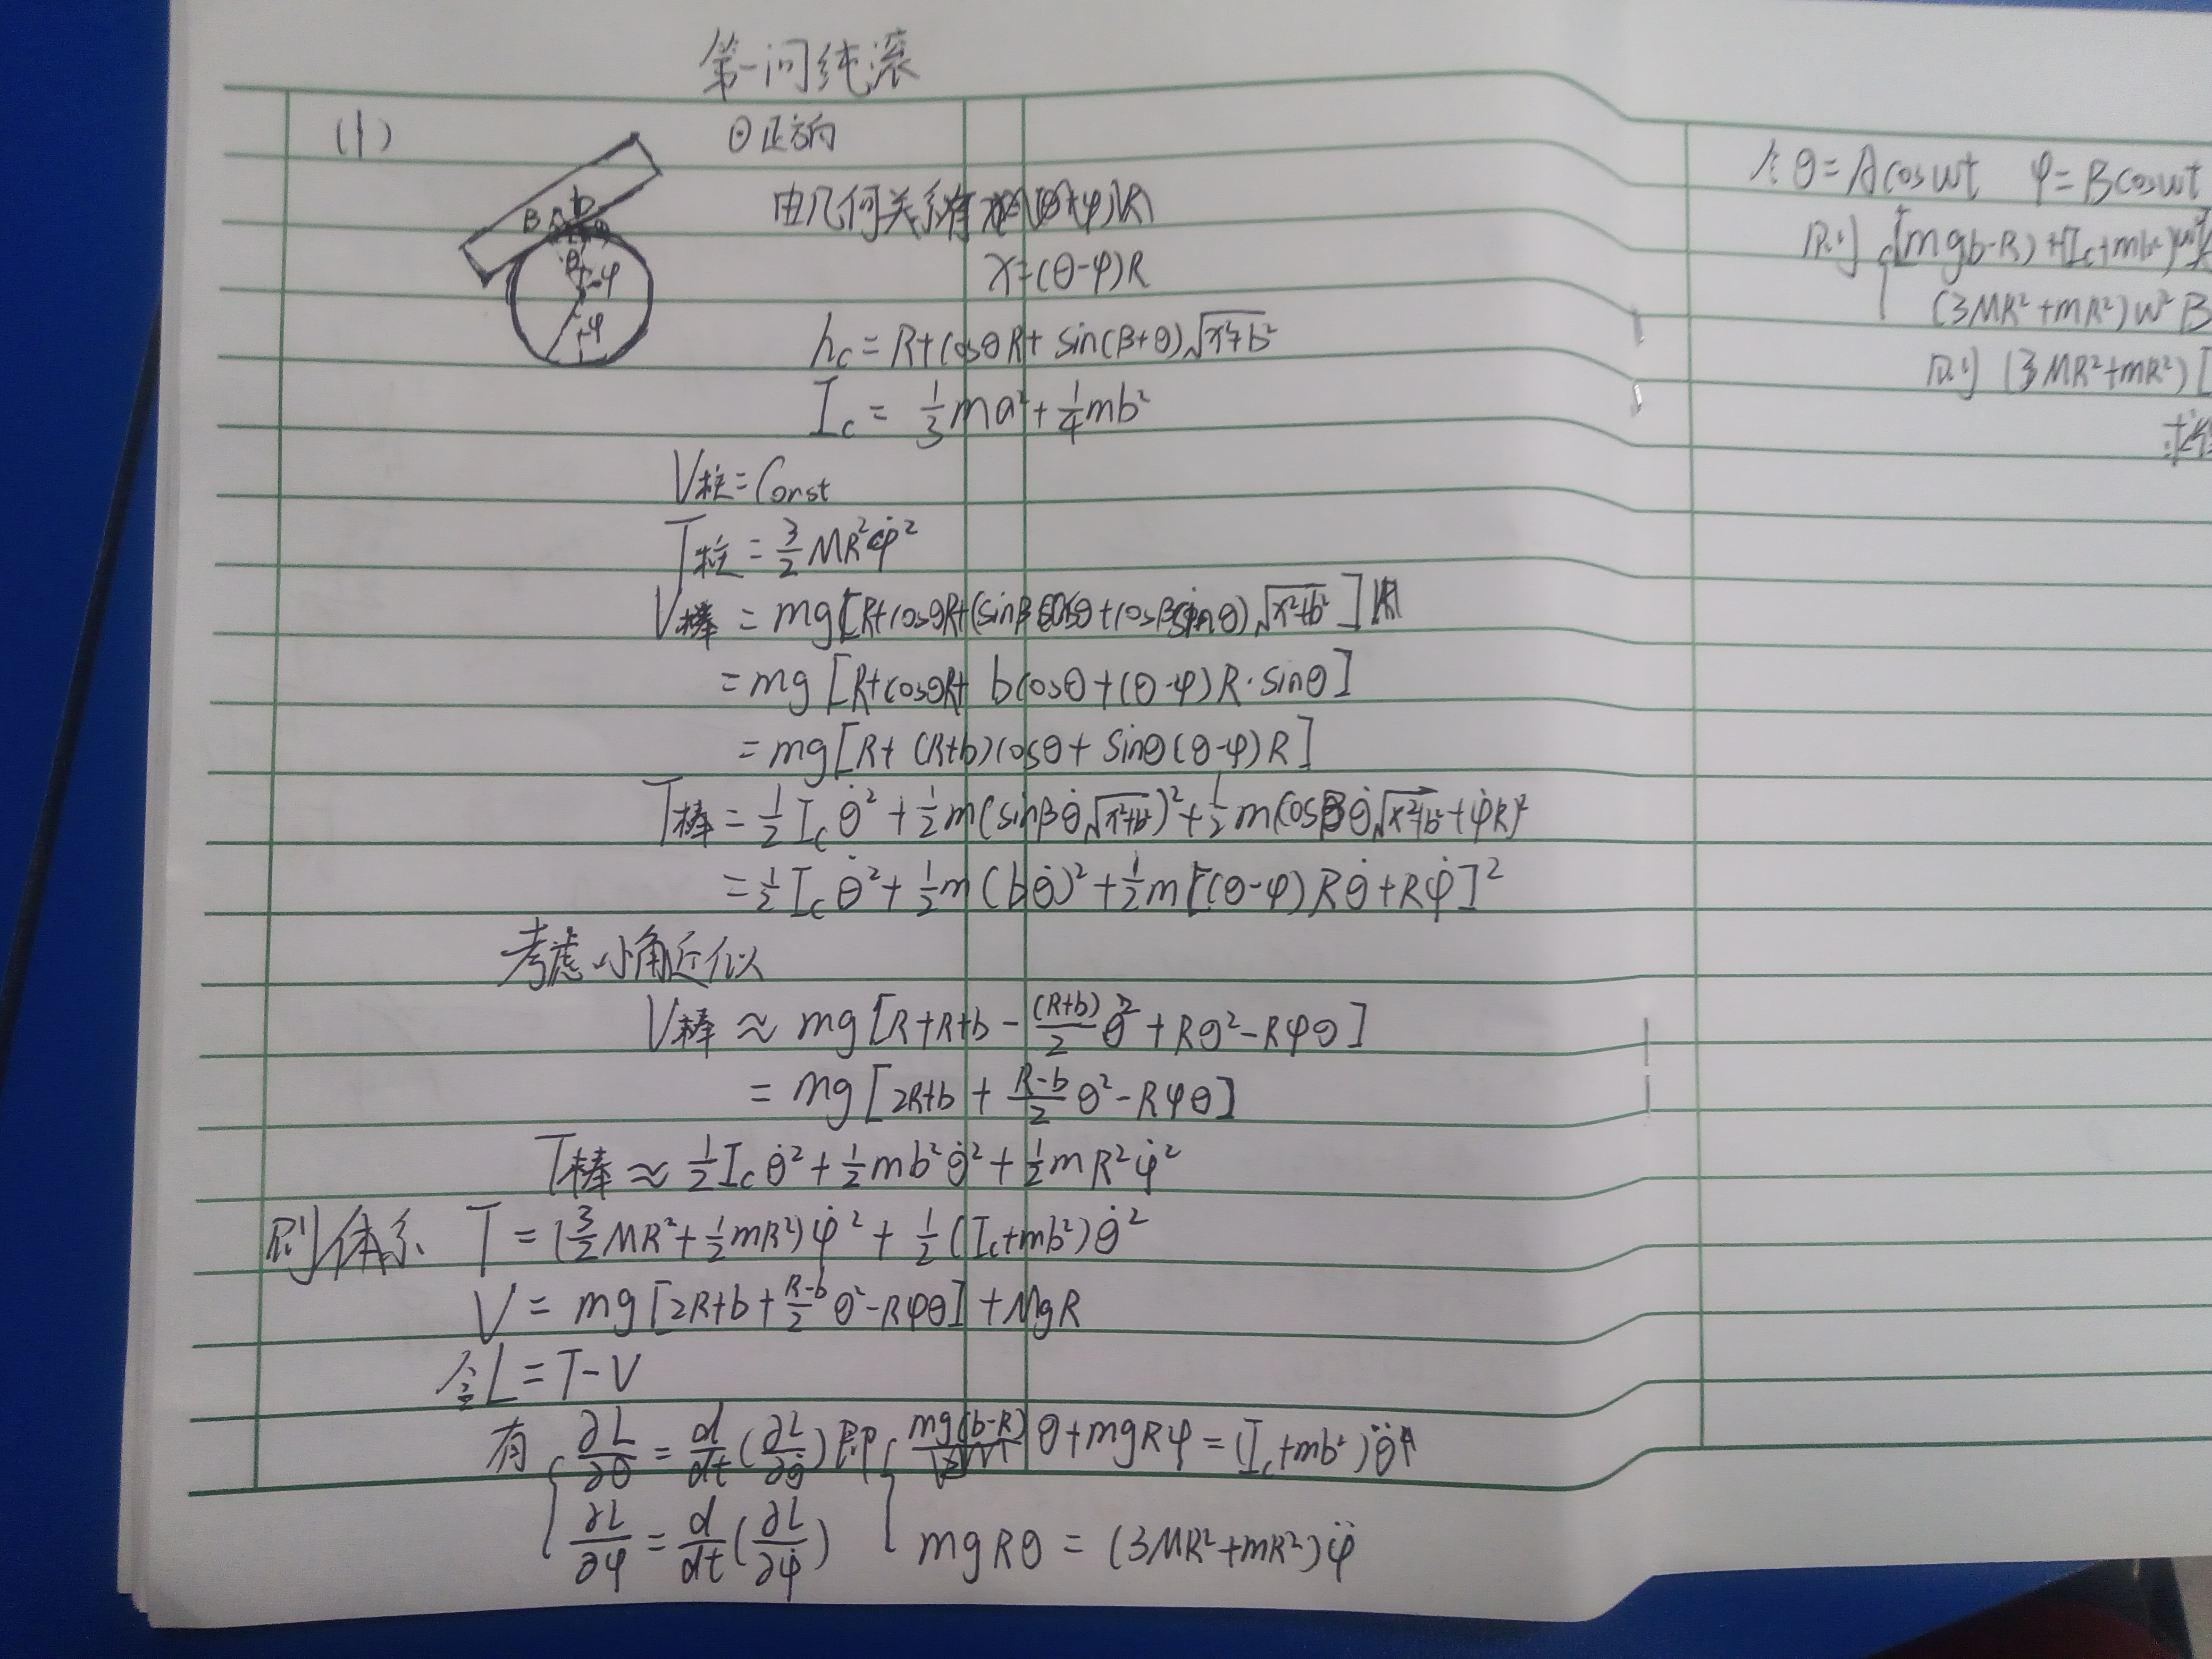 第一问纯滚
(1)
θ正方向
由几何关系有
x=(θ-φ)R
h_c = R+cosθR+ sin(β+θ)√(x²+b²)
I_c = 1/3 ma² + 1/4 mb²
V柱=Const
T柱 = 3/2 MR²φ̇²
V棒 = mg[R+cosθR+(sinβcosθ+cosβsinθ)√(x²+b²)]
=mg[R+cosθR+ bcosθ+(θ-φ)R·sinθ]
=mg[R+ (R+b)cosθ+ sinθ(θ-φ)R]
T棒 = 1/2 I_c θ̇² + 1/2 m(sinβθ̇√(x²+b²))² + 1/2 m(cosβθ̇√(x²+b²)+φ̇R)²
=1/2 I_c θ̇² + 1/2 m(bθ̇)² + 1/2 m[(θ-φ)Rθ̇+Rφ̇]²
考虑小角近似
V棒 ≈ mg[R+R+b - (R+b)/2 θ² + Rθ² - Rφθ]
= mg[2R+b + (R-b)/2 θ² - Rφθ]
T棒 ≈ 1/2 I_c θ̇² + 1/2 mb²θ̇² + 1/2 mR²φ̇²
则体系 T = (3/2 MR² + 1/2 mR²)φ̇² + 1/2 (I_c+mb²)θ̇²
V = mg[2R+b + (R-b)/2 θ² - Rφθ] + MgR
令L=T-V
有 ∂L/∂θ = d/dt(∂L/∂θ̇) 即 mg(b-R) θ+mgRφ = (I_c+mb²)θ̈
∂L/∂φ = d/dt(∂L/∂φ̇) mgRθ = (3MR²+mR²)φ̈
令θ=Acosωt φ=Bcosωt
则 [mg(b-R)+(I_c+mb²)ω²]
(3MR²+mR²)ω²B
则 (3MR²+mR²)[